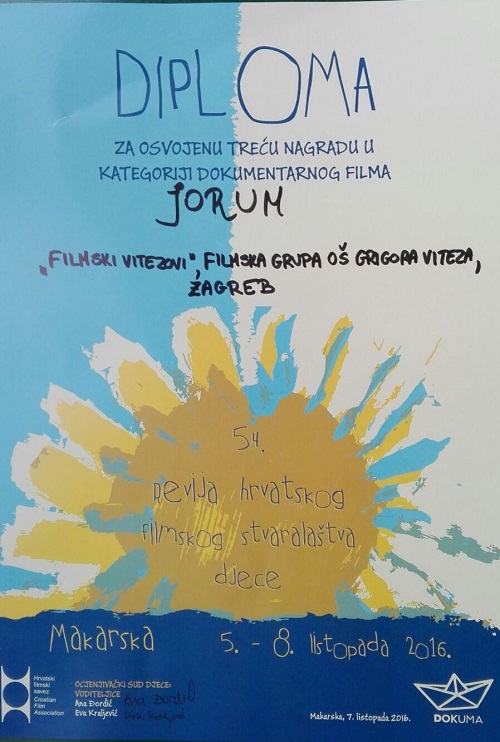 DIPLOMA
ZA OSVOJENU TREĆU NAGRADU U
KATEGORIJI DOKUMENTARNOG FILMA
JORUM
"FILMSKI VITEZOVI", FILMSKA GRUPA OŠ GRIGORA VITEZA,
ZAGREB
54.
revija hrvatskog
filmskog stvaralaštva
djece
Makarska 5. - 8. listopada 2016.
Hrvatski
filmski
savez
Croatian
Film
Association
OCJENJIVAČKI SUD DJECE:
VODITELJICE
Ana Đordić Ana Đordić
Eva Kraljević Eva Kraljević
Makarska, 7. listopada 2016.
DOKUMA